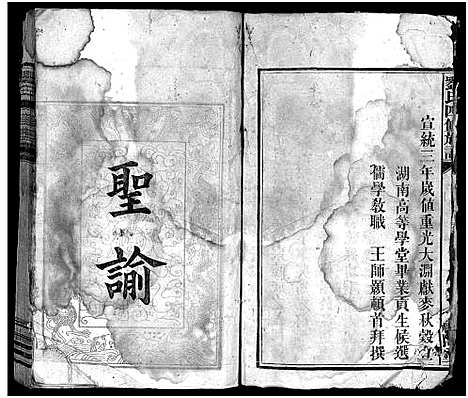 宣統三年歲値重光大淵獻麥秋穀
湖南高等學堂畢業貢生候選
儒學敎職 王師顥頓首拜撰
聖諭